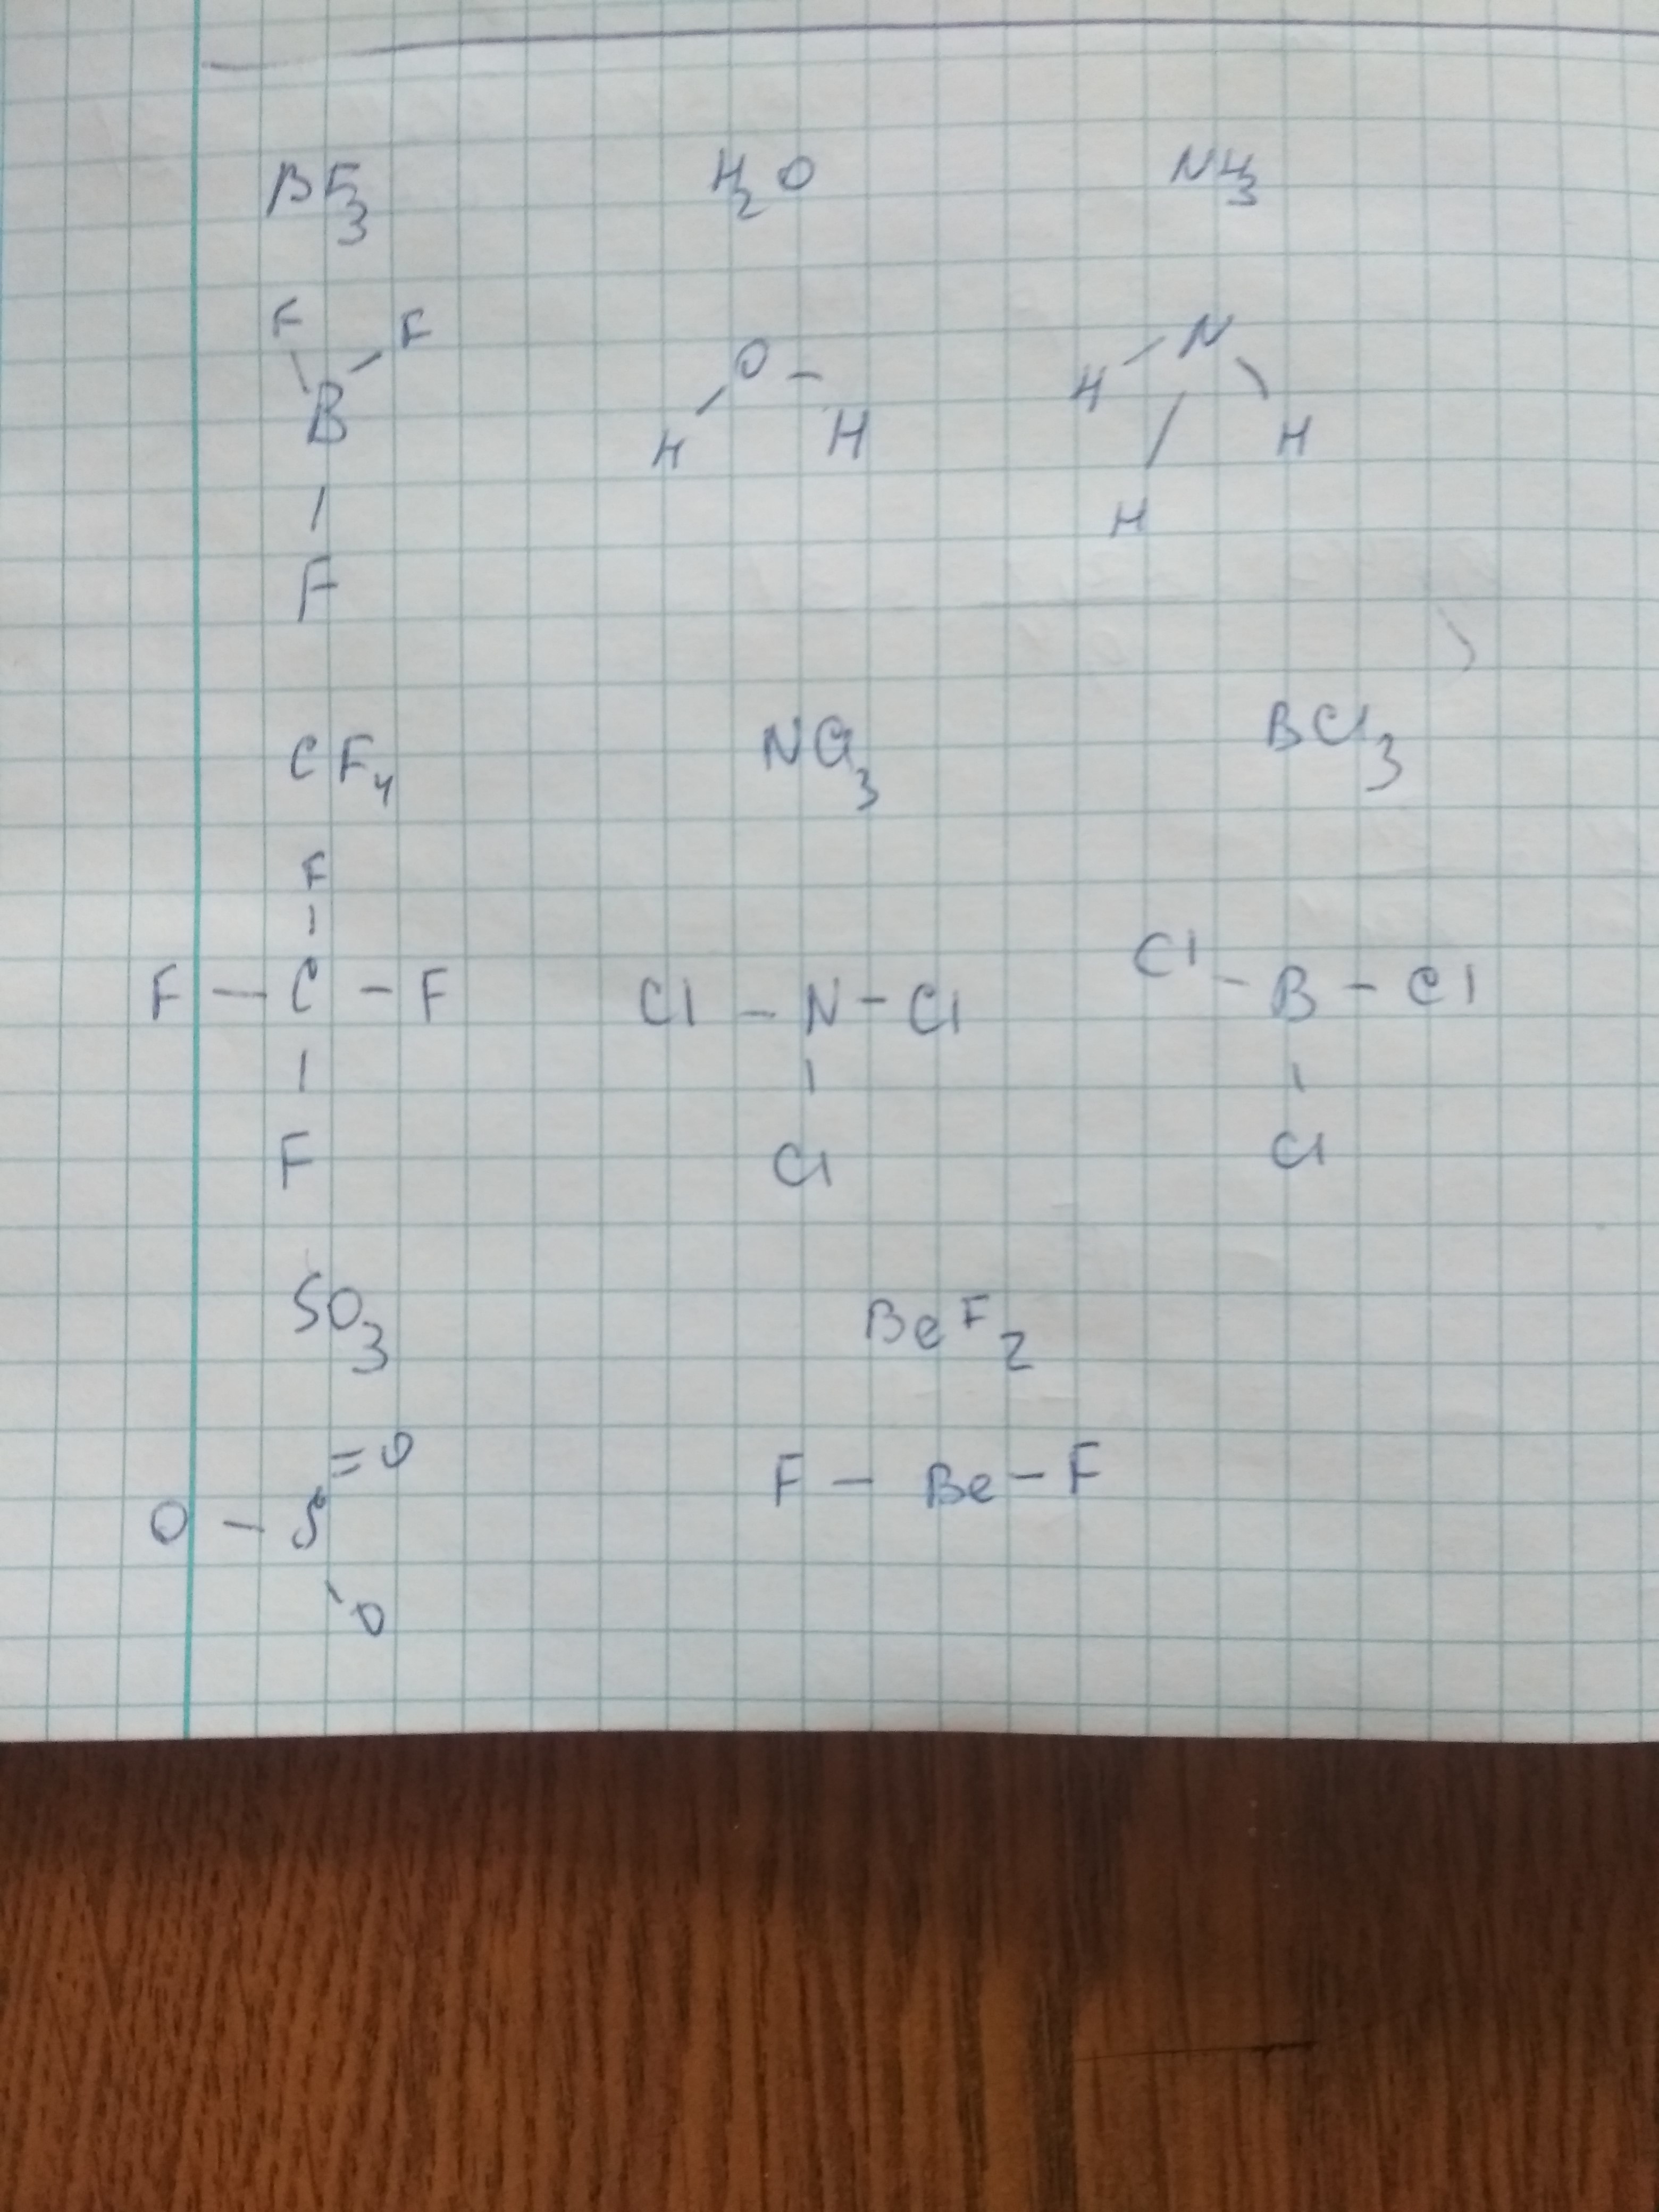 BF3 H2O NH3
F F
B
F
O
H H
N
H H
H
CF4 NCl3 BCl3
F
F - C - F
F
Cl - N - Cl
Cl
Cl - B - Cl
Cl
SO3 BeF2
=O
O - S
O
F - Be - F